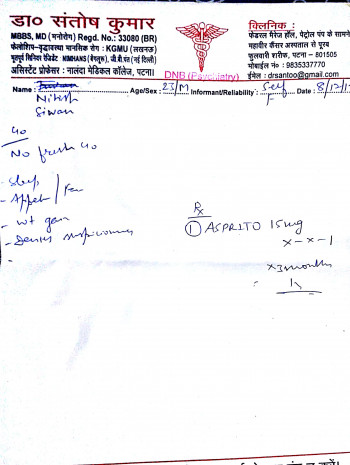 डा० संतोष कुमार
MBBS, MD (मनोरोग) Regd. No.: 33080 (BR)
फेलोशिप-वृद्धावस्था मानसिक रोग : KGMU (लखनऊ)
भूतपूर्व सिनियर रेजिडेंट NIMHANS (बेंगलुरू), जी.बी.पन्त (नई दिल्ली)
असिस्टेंट प्रोफेसर : नालंदा मेडिकल कॉलेज, पटना।
DNB (Psychiatry)
क्लिनिक :
फेडरल मैरेज हॉल, पेट्रोल पंप के सामने
महावीर कैंसर अस्पताल से पूरब
फुलवारी शरीफ, पटना – 801505
मोबाईल नं० : 9835337770
ईमेल : drsantoo@gmail.com
Name : Nitesh Age/Sex : 23/M Informant/Reliability : Self
F
Siwan
No fresh c/o
- Sleep
- Appet
- wt gain
- Denies suspiciousness
Rx
① ASPRITO 15mg
x-x-1
x 3 months